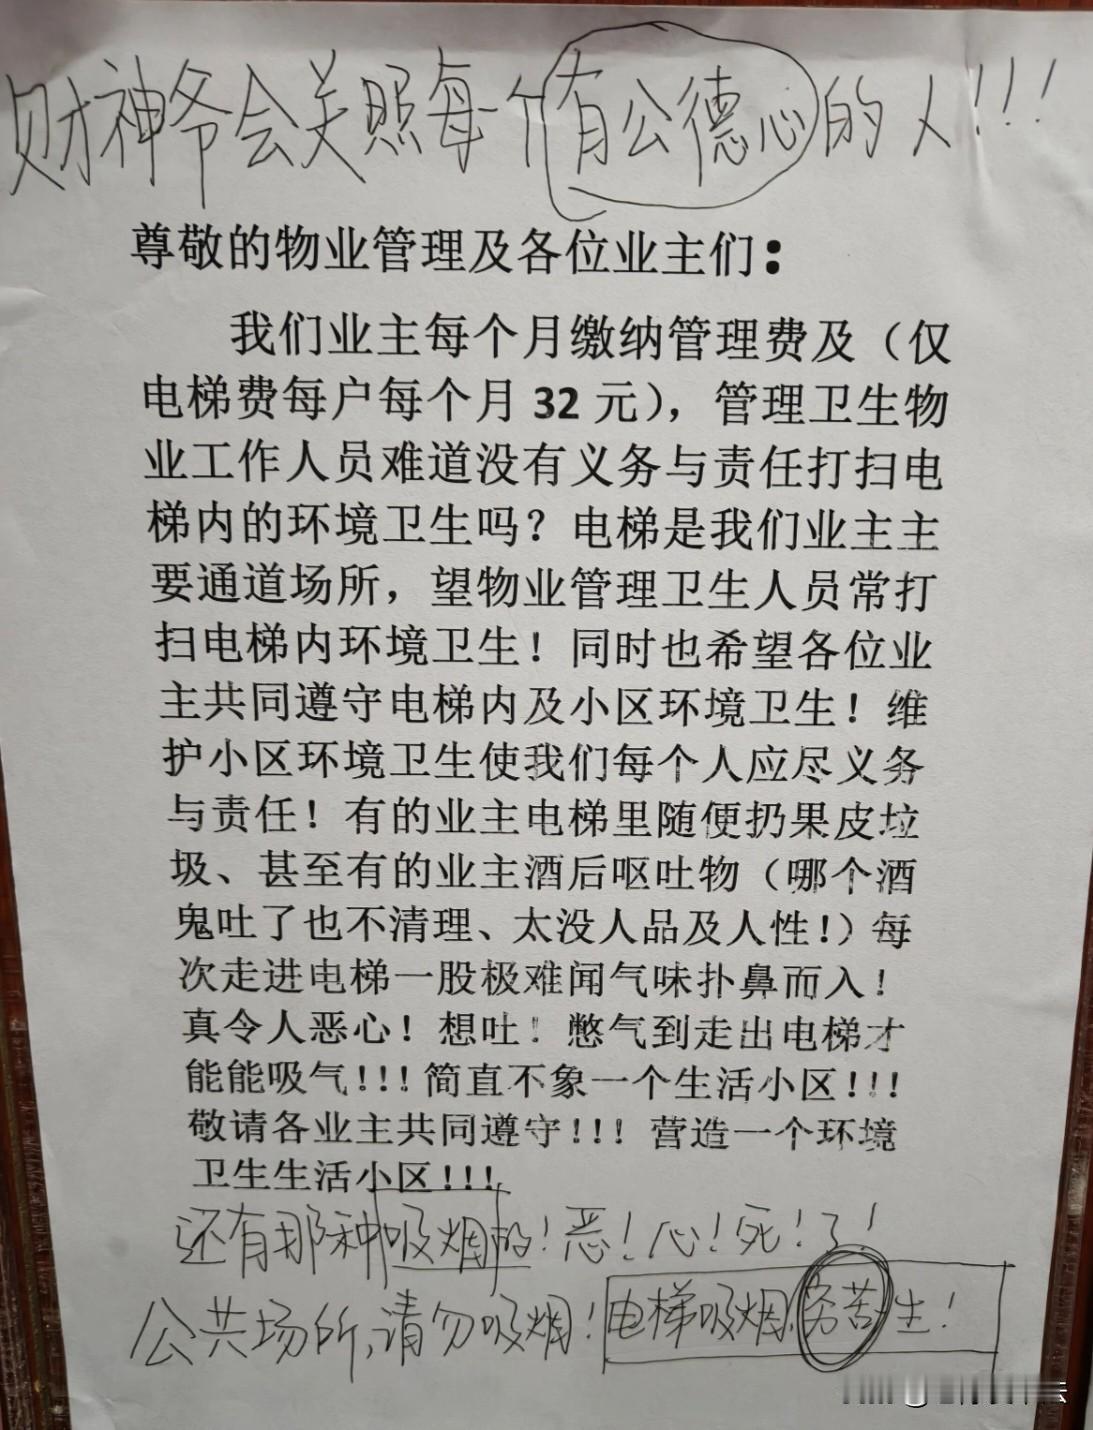 财神爷会关照每个有公德心的人!!!
尊敬的物业管理及各位业主们：
我们业主每个月缴纳管理费及（仅
电梯费每户每个月 32 元），管理卫生物
业工作人员难道没有义务与责任打扫电
梯内的环境卫生吗？电梯是我们业主主
要通道场所，望物业管理卫生人员常打
扫电梯内环境卫生！同时也希望各位业
主共同遵守电梯内及小区环境卫生！维
护小区环境卫生使我们每个人应尽义务
与责任！有的业主电梯里随便扔果皮垃
圾、甚至有的业主酒后呕吐物（哪个酒
鬼吐了也不清理、太没人品及人性！）每
次走进电梯一股极难闻气味扑鼻而入！
真令人恶心！想吐！憋气到走出电梯才
能能吸气!!!简直不象一个生活小区!!!
敬请各业主共同遵守!!! 营造一个环境
卫生生活小区!!!
还有那种吸烟的！恶！心！死！了！
公共场所,请勿吸烟！电梯吸烟,穷苦一生！